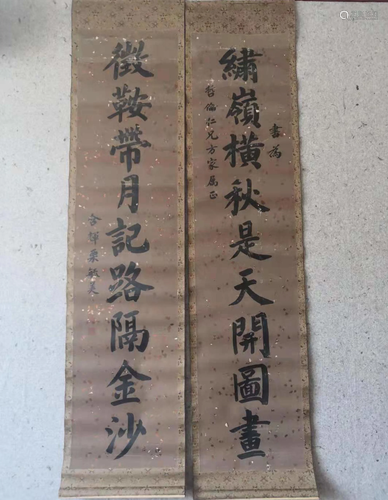 書為
哲倫仁兄方家屬正
繡嶺橫秋是天開圖畫
徵鞍帶月記路隔金沙